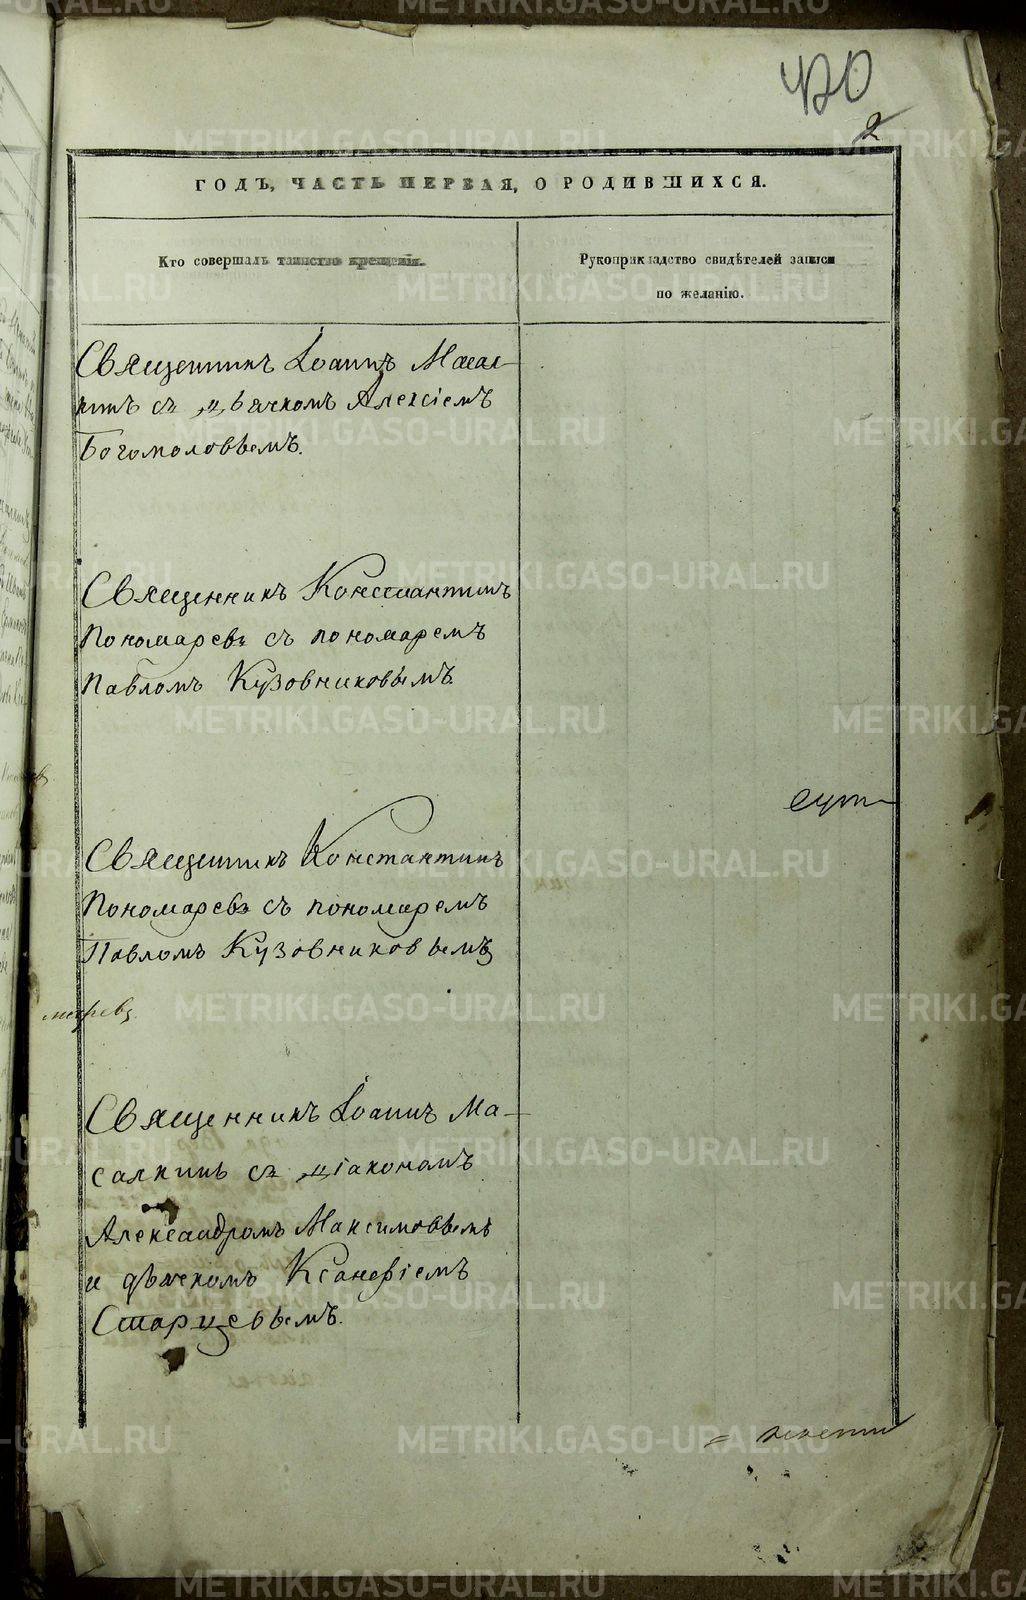 420
2
ГОДЪ, ЧАСТЬ ПЕРВАЯ, О РОДИВШИХСЯ.
Кто совершалъ таинство крещенія.
Рукоприкладство свидѣтелей записи
по желанію.
Священникъ Іоаннъ Масал-
кинъ съ дьячкомъ Алексіемъ
Богомоловымъ.
Священникъ Константинъ
Пономаревъ съ пономаремъ
Павломъ Кузовниковымъ
Священникъ Константинъ
Пономаревъ съ пономаремъ
Павломъ Кузовниковымъ
Священникъ Іоаннъ Ма-
салкинъ съ діакономъ
Александромъ Максимовымъ
и дьячкомъ Ксанфіемъ
Старцевымъ.
METRIKI.GASO-URAL.RU